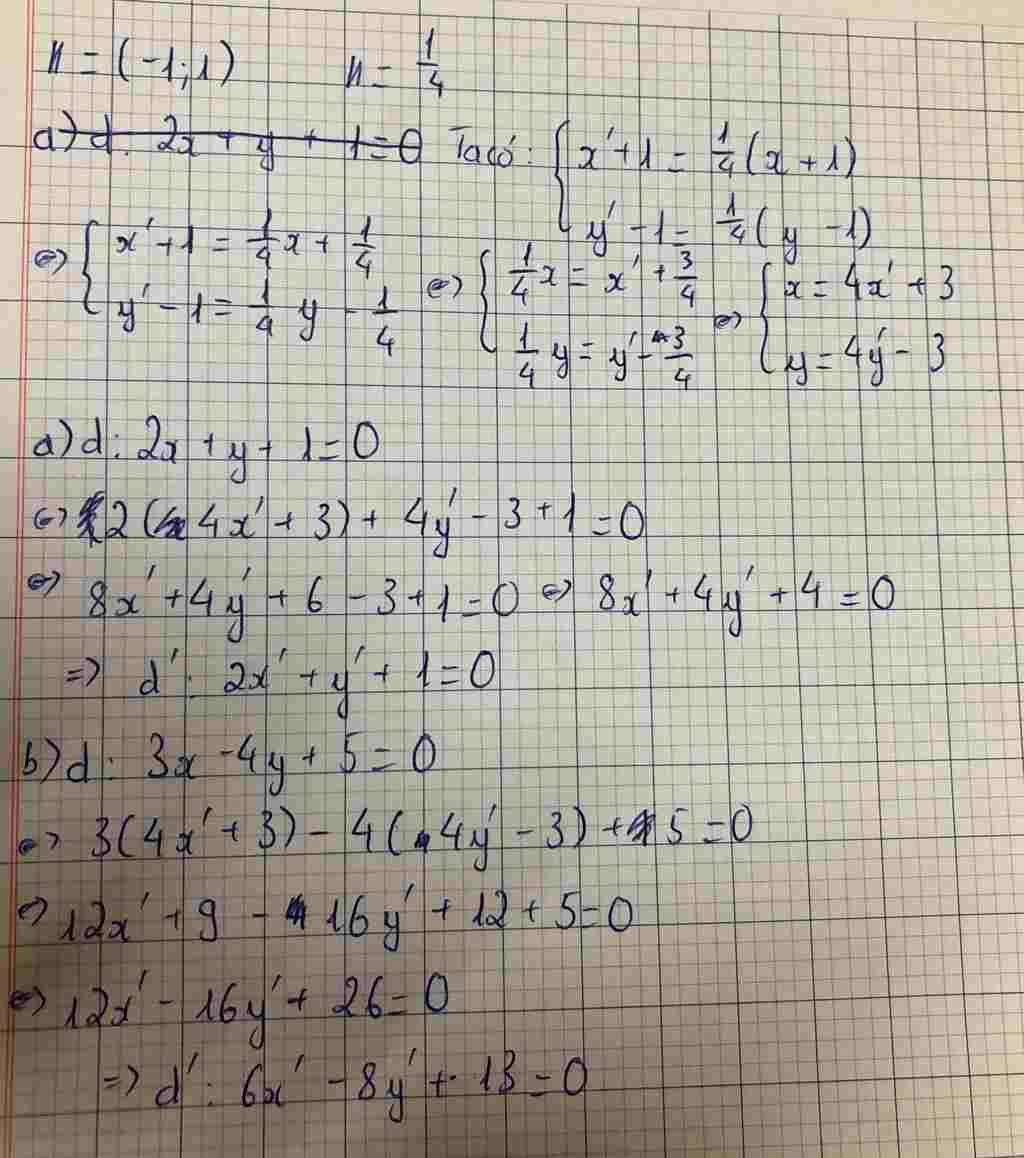 H = (-1;1) k = 1/4
a) d: 2x + y + 1 = 0 Ta có: { x' + 1 = 1/4 (x + 1)
y' - 1 = 1/4 (y - 1)
⇔ { x' + 1 = 1/4 x + 1/4 ⇔ { 1/4 x = x' + 3/4 ⇔ { x = 4x' + 3
y' - 1 = 1/4 y - 1/4 1/4 y = y' - 3/4 y = 4y' - 3
a) d: 2x + y + 1 = 0
⇔ 2(4x' + 3) + 4y' - 3 + 1 = 0
⇔ 8x' + 4y' + 6 - 3 + 1 = 0 ⇔ 8x' + 4y' + 4 = 0
⇒ d': 2x' + y' + 1 = 0
b) d: 3x - 4y + 5 = 0
⇔ 3(4x' + 3) - 4(4y' - 3) + 5 = 0
⇔ 12x' + 9 - 16y' + 12 + 5 = 0
⇔ 12x' - 16y' + 26 = 0
⇒ d': 6x' - 8y' + 13 = 0